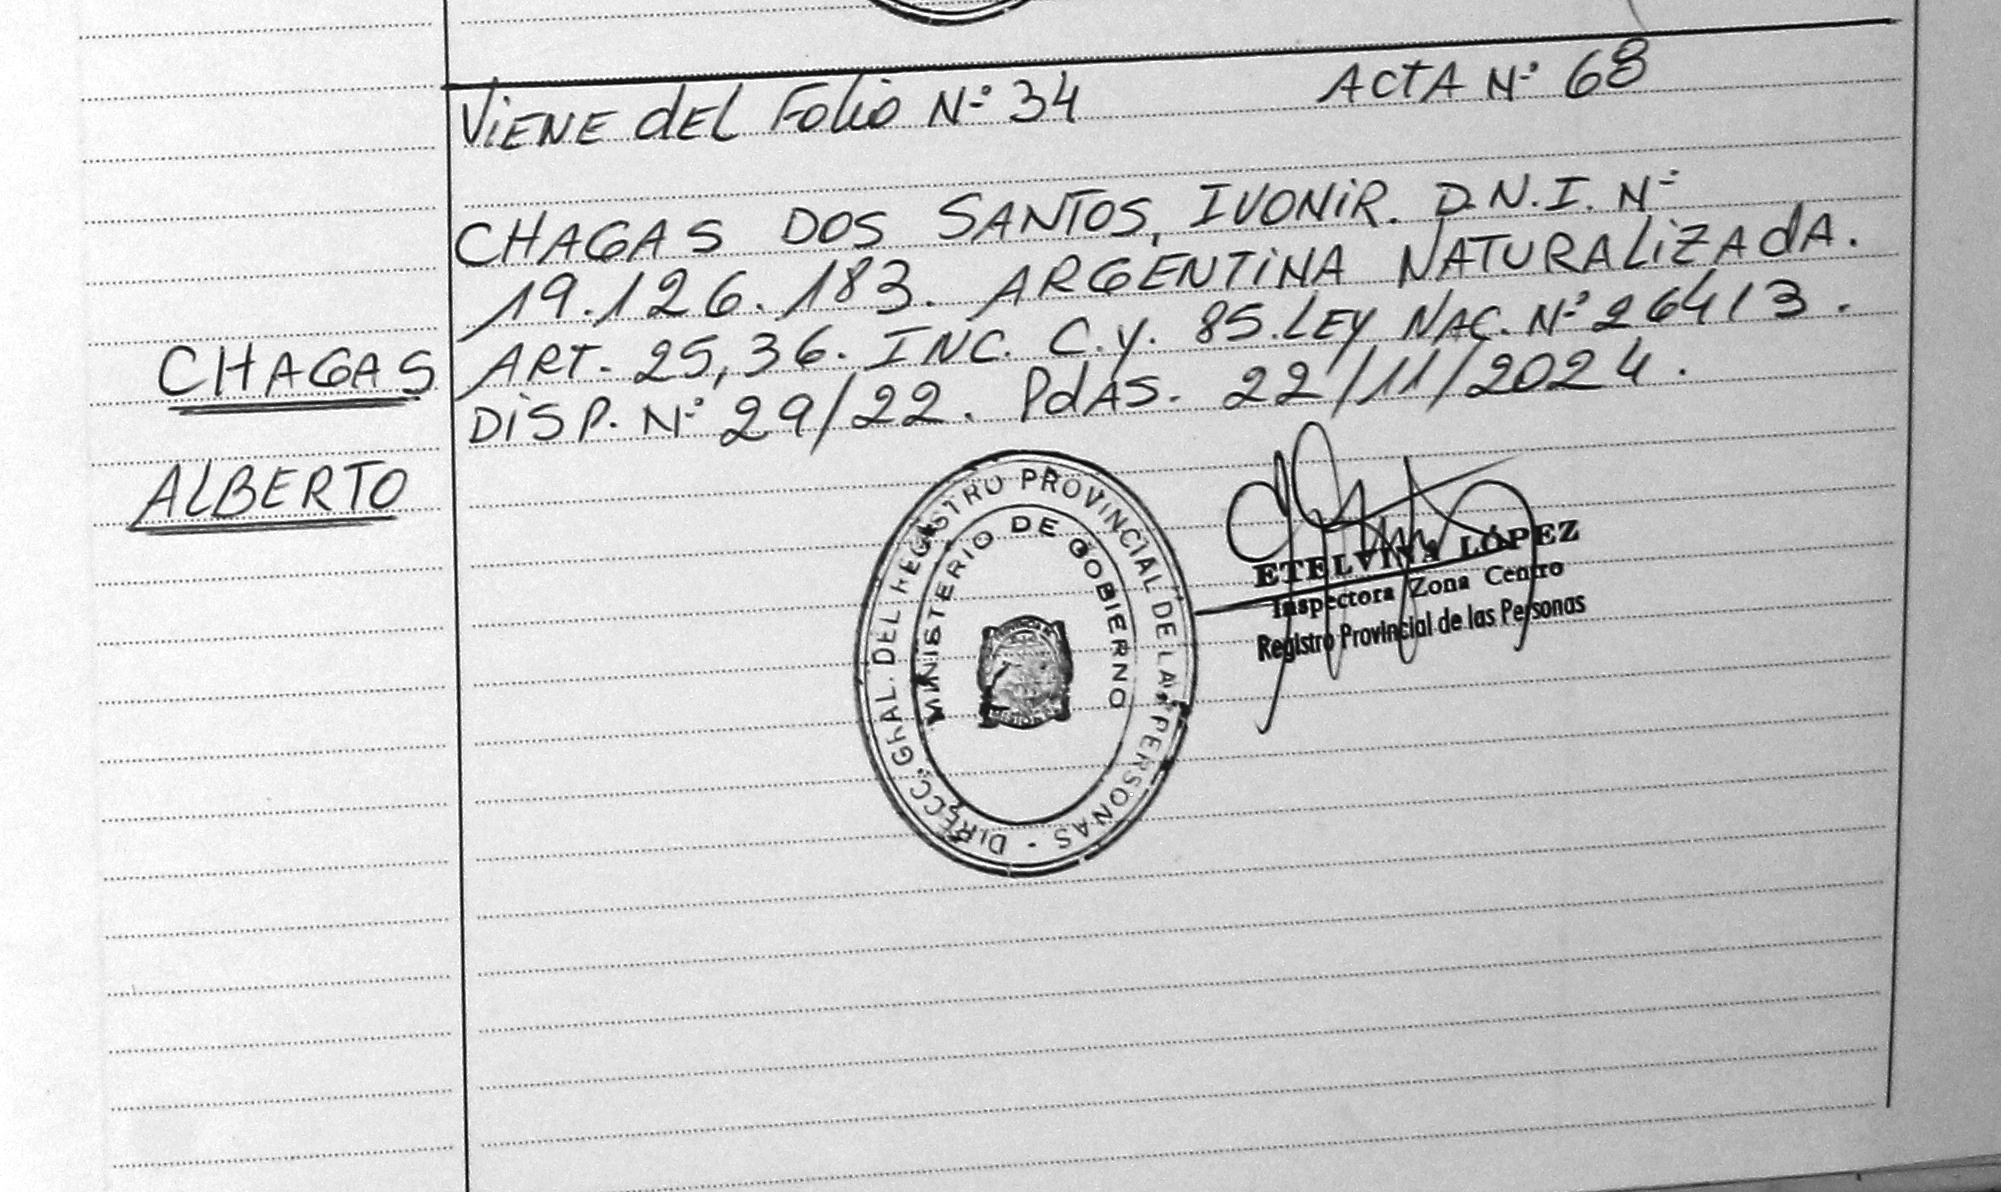 ViENE dEL Folio Nº 34 ACtA Nº 68
CHAGAS DOS SANTOS, IVONiR. D.N.I. Nº
19.126.183. ARGENTiNA NATURALiZAdA.
CHAGAS
ART. 25,36. INC. C.y. 85.LEY NAC. Nº 26413.
DiSP. Nº 29/22. PdAS. 22/11/2024.
ALBERTO
DIRECC. GRAL. DEL REGISTRO PROVINCIAL DE LAS PERSONAS -
MINISTERIO DE GOBIERNO
ETELVINA LÓPEZ
Inspectora Zona Centro
Registro Provincial de las Personas